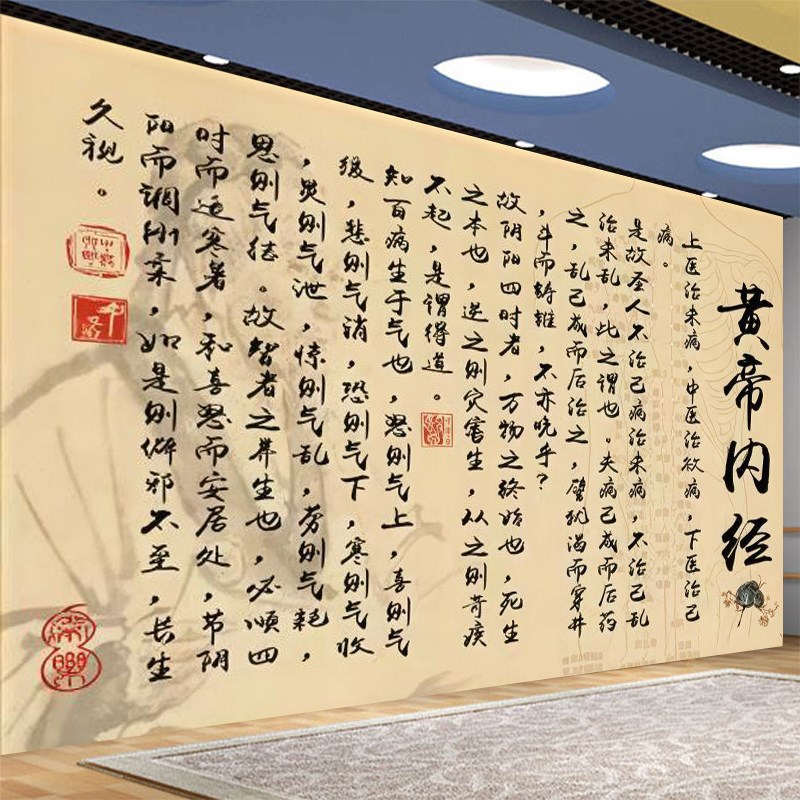 黄帝内经
上医治未病，中医治欲病，下医治已
病。
是故圣人不治已病治未病，不治已乱
治未乱，此之谓也。夫病已成而后药
之，乱已成而后治之，譬犹渴而穿井
，斗而铸锥，不亦晚乎？
故阴阳四时者，万物之终始也，死生
之本也，逆之则灾害生，从之则苛疾
不起，是谓得道。
知百病生于气也，怒则气上，喜则气
缓，悲则气消，恐则气下，寒则气收
，炅则气泄，惊则气乱，劳则气耗，
思则气结。故智者之养生也，必顺四
时而适寒暑，和喜怒而安居处，节阴
阳而调刚柔，如是则僻邪不至，长生
久视。